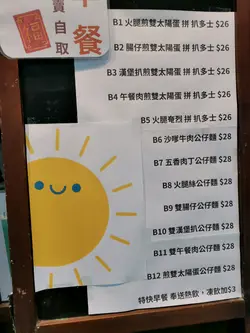 餐
賣自取
B1 火腿煎雙太陽蛋 拼 扒多士 $26
B2 腸仔煎雙太陽蛋 拼 扒多士 $26
B3 漢堡扒煎雙太陽蛋 拼 扒多士 $26
B4 午餐肉煎雙太陽蛋 拼 扒多士 $26
B5 火腿奄烈 拼 扒多士 $26
B6 沙嗲牛肉公仔麵 $28
B7 五香肉丁公仔麵 $28
B8 火腿絲公仔麵 $28
B9 雙腸仔公仔麵 $28
B10 雙漢堡扒公仔麵 $28
B11 雙午餐肉公仔麵 $28
B12 煎雙太陽蛋公仔麵 $28
特快早餐 奉送熱飲，凍飲加$3